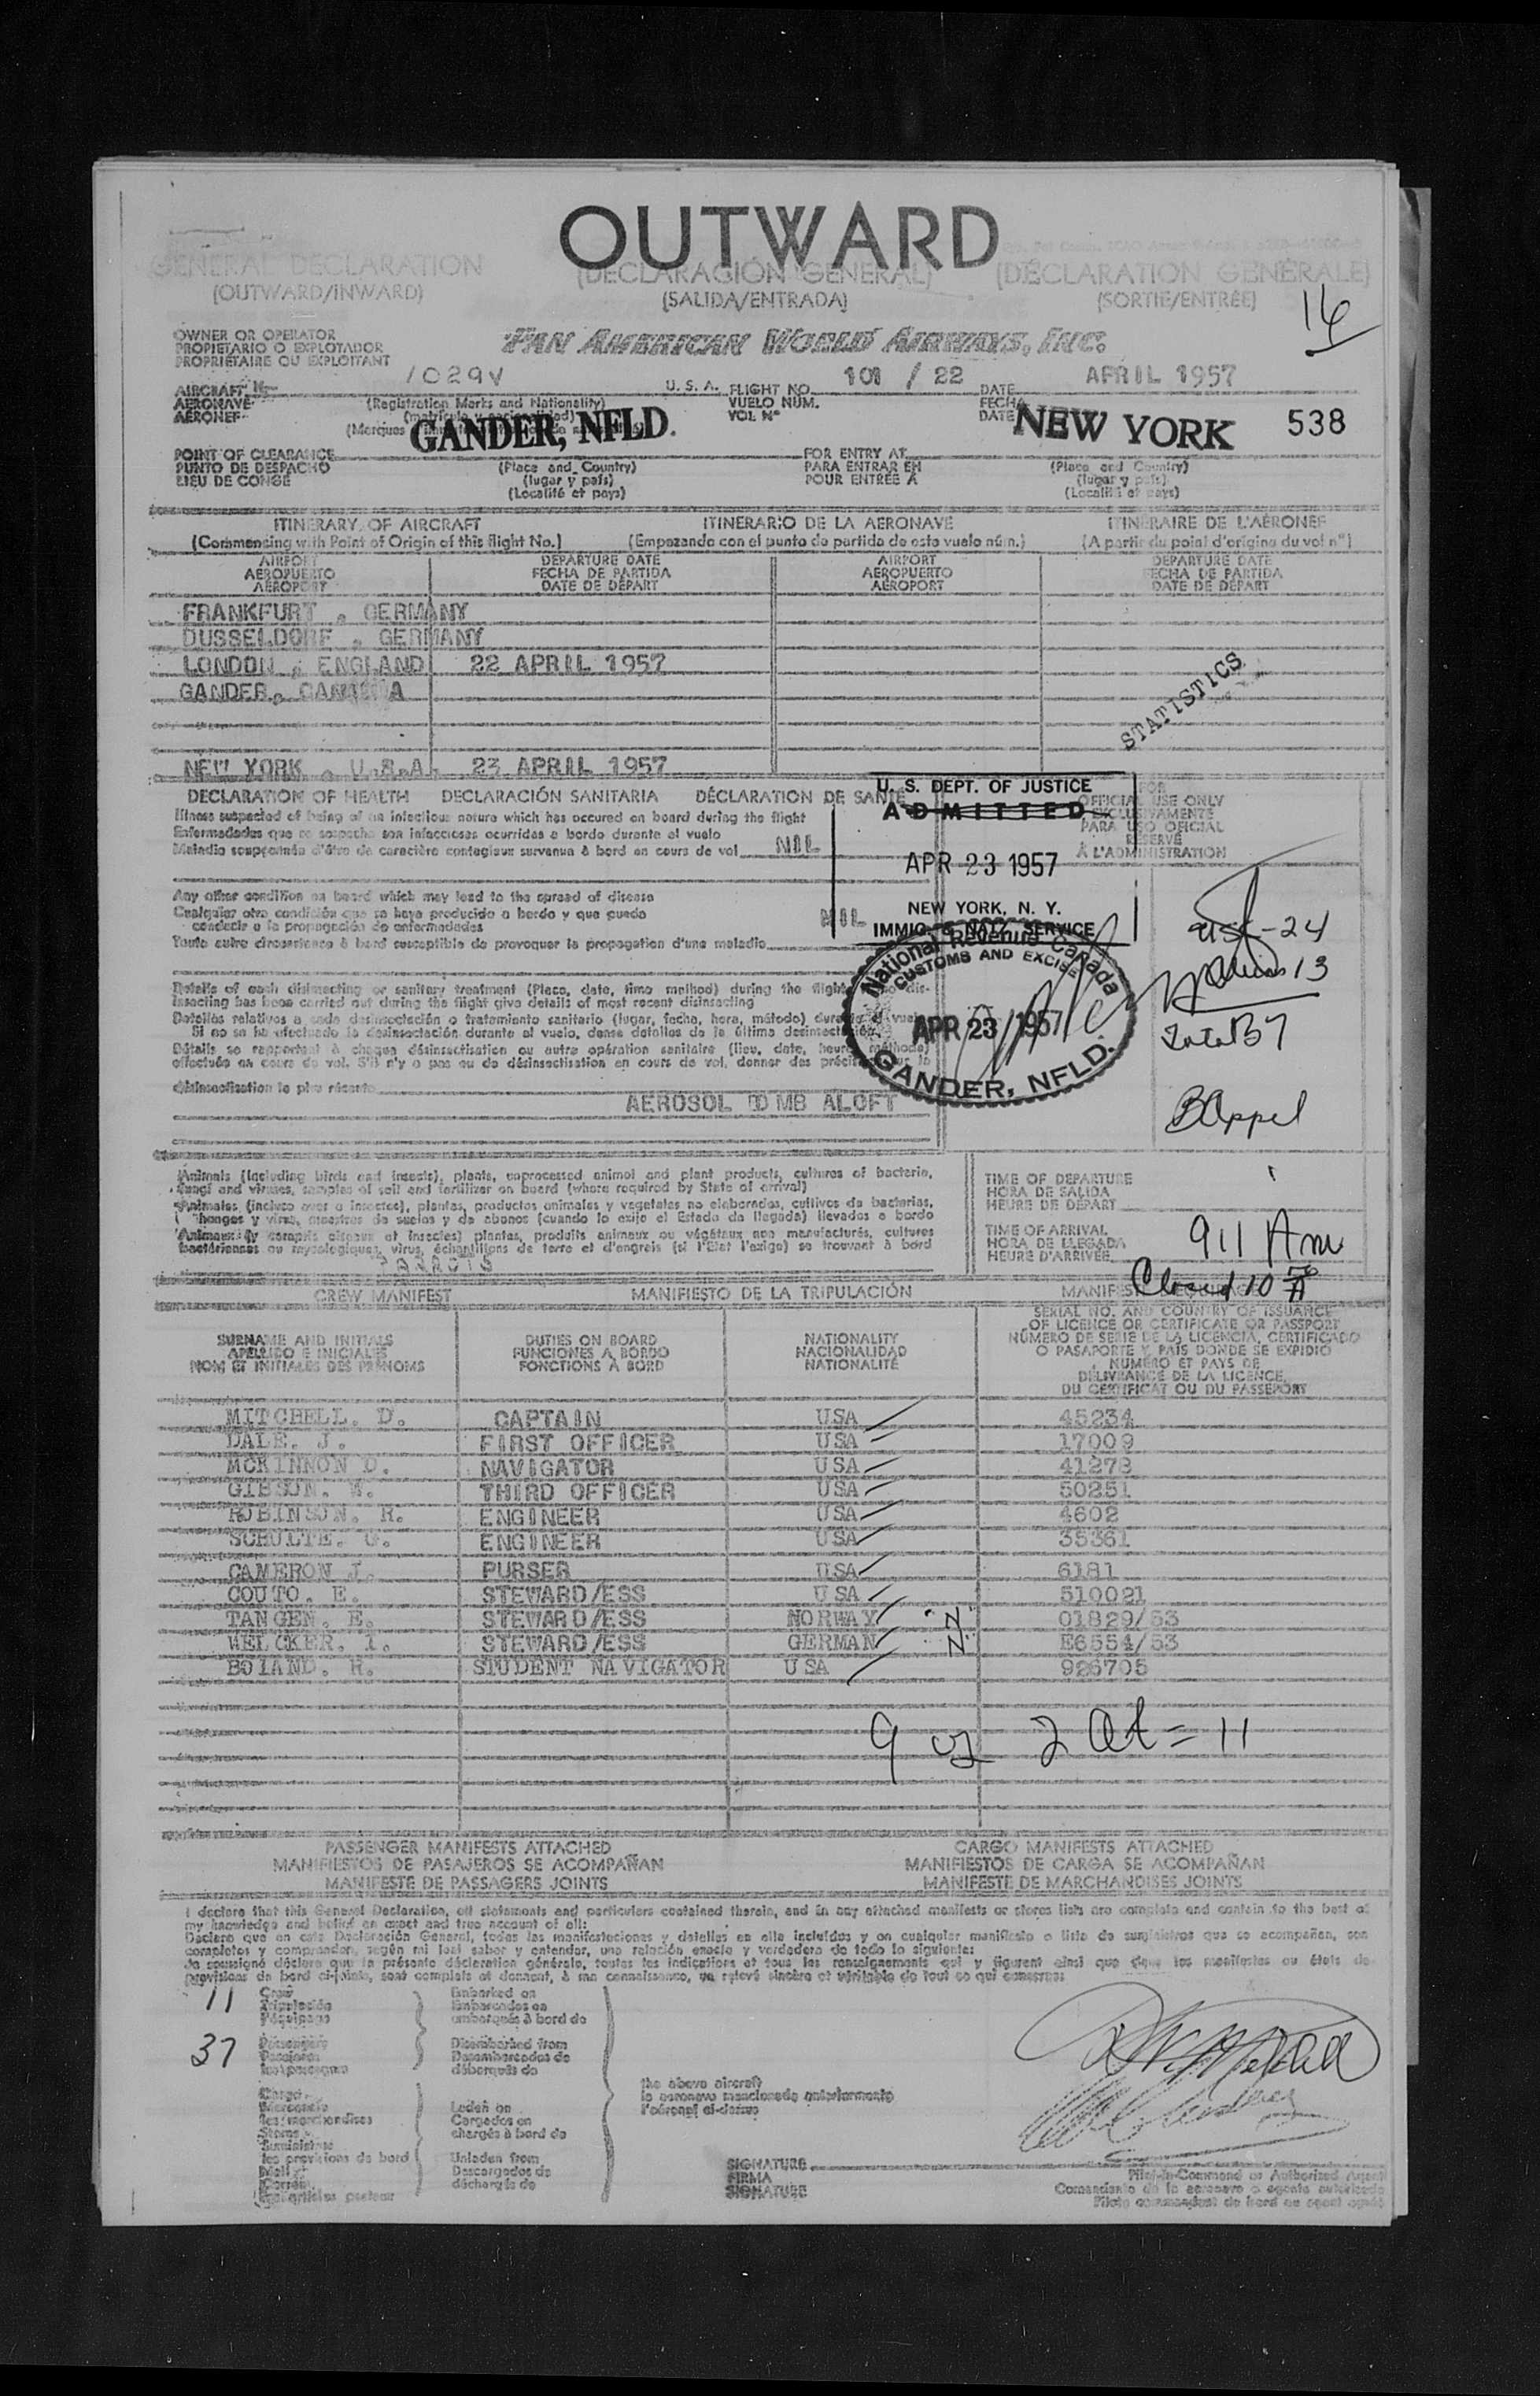 OUTWARD
GENERAL DECLARATION (DECLARACIÓN GENERAL) (DÉCLARATION GÉNÉRALE)
(OUTWARD/INWARD) (SALIDA/ENTRADA) (SORTIE/ENTRÉE)
16
OWNER OR OPERATOR
PROPIETARIO O EXPLOTADOR
PROPRIÉTAIRE OU EXPLOITANT
PAN AMERICAN WORLD AIRWAYS, INC.
AIRCRAFT 1029V U.S.A. FLIGHT NO. 101 / 22 DATE APRIL 1957
AERONAVE (Registration Marks and Nationality) VUELO NÚM. FECHA
AÉRONEF VOL Nº DATE
GANDER, NFLD. NEW YORK 538
POINT OF CLEARANCE FOR ENTRY AT
PUNTO DE DESPACHO (Place and Country) PARA ENTRAR EN (Place and Country)
LIEU DE CONGÉ (lugar y país) POUR ENTRÉE À (lugar y país)
(Localité et pays) (Localité et pays)
ITINERARY OF AIRCRAFT ITINERARIO DE LA AERONAVE ITINÉRAIRE DE L'AÉRONEF
(Commencing with Point of Origin of this flight No.) (Empezando con el punto de partida de este vuelo núm.) (A partir du point d'origine du vol nº)
AIRPORT DEPARTURE DATE AIRPORT DEPARTURE DATE
AEROPUERTO FECHA DE PARTIDA AEROPUERTO FECHA DE PARTIDA
AÉROPORT DATE DE DÉPART AÉROPORT DATE DE DÉPART
FRANKFURT, GERMANY
DUSSELDORF, GERMANY
LONDON, ENGLAND 22 APRIL 1957
GANDER, CANADA
STATISTICS
NEW YORK, U.S.A. 23 APRIL 1957
DECLARATION OF HEALTH DECLARACIÓN SANITARIA DÉCLARATION DE SANTÉ
Illness suspected of being of an infectious nature which has occured on board during the flight
Enfermedades que se sospecha son infecciosas ocurridas a bordo durante el vuelo
Maladie soupçonnée d'être de caractère contagieux survenue à bord en cours de vol NIL
U. S. DEPT. OF JUSTICE
ADMITTED
APR 23 1957
NEW YORK, N. Y.
IMMIG. & NATZ. SERVICE
FOR
OFFICIAL USE ONLY
EXCLUSIVAMENTE
PARA USO OFICIAL
RÉSERVÉ
À L'ADMINISTRATION
Any other condition on board which may lead to the spread of disease
Cualquier otra condición que se haya producido a bordo y que pueda
conducir a la propagación de enfermedades NIL
Toute autre circonstance à bord susceptible de provoquer la propagation d'une maladie
National Revenue Canada
CUSTOMS AND EXCISE
APR 23 1957
GANDER, NFLD.
USC-24
Aliens 13
Total 37
B Appel
Details of each disinsecting or sanitary treatment (Place, date, time method) during the flight
insecting has been carried out during the flight give details of most recent disinsecting
Detalles relativos a cada desinsectación o tratamiento sanitario (lugar, fecha, hora, método) durante el vuelo
Si no se ha efectuado la desinsectación durante el vuelo, dense detalles de la última desinsectación
Détails se rapportant à chaque désinsectisation ou autre opération sanitaire (lieu, date, heure, méthode)
effectuée en cours de vol. S'il n'y a pas eu de désinsectisation en cours de vol, donner des précisions sur la
désinsectisation la plus récente
AEROSOL BOMB ALOFT
Animals (including birds and insects), plants, unprocessed animal and plant products, cultures of bacteria,
fungi and viruses, samples of soil and fertilizer on board (where required by State of arrival)
Animales (incluso aves o insectos), plantas, productos animales y vegetales no elaborados, cultivos de bacterias,
hongos y virus, muestras de suelos y de abonos (cuando lo exija el Estado de llegada) llevados a bordo
Animaux (y compris oiseaux et insectes) plantes, produits animaux ou végétaux non manufacturés, cultures
bactériennes ou mycologiques, virus, échantillons de terre et d'engrais (si l'Etat l'exige) se trouvant à bord
PARROTS
TIME OF DEPARTURE
HORA DE SALIDA
HEURE DE DÉPART
TIME OF ARRIVAL
HORA DE LLEGADA
HEURE D'ARRIVÉE
911 Am
Closed 10
CREW MANIFEST MANIFIESTO DE LA TRIPULACIÓN
SURNAME AND INITIALS DUTIES ON BOARD NATIONALITY SERIAL NO. AND COUNTRY OF ISSUANCE
APELLIDO E INICIALES FUNCIONES A BORDO NACIONALIDAD OF LICENCE OR CERTIFICATE OR PASSPORT
NOM ET INITIALES DES PRÉNOMS FONCTIONS À BORD NATIONALITÉ NÚMERO DE SERIE DE LA LICENCIA, CERTIFICADO
O PASAPORTE Y PAÍS DONDE SE EXPIDIÓ
NUMÉRO ET PAYS DE
DÉLIVRANCE DE LA LICENCE,
DU CERTIFICAT OU DU PASSEPORT
MITCHELL. D. CAPTAIN USA 45234
DALE. J. FIRST OFFICER USA 17009
MCKINNON D. NAVIGATOR USA 41278
GIBSON. W. THIRD OFFICER USA 50251
ROBINSON. R. ENGINEER USA 4602
SCHULTE. G. ENGINEER USA 35361
CAMERON J. PURSER USA 6181
COUTO. E. STEWARD/ESS USA 510021
TANGEN. E. STEWARD/ESS NORWAY 01829/53
WELCKER. I. STEWARD/ESS GERMAN E6554/53
BOIAND. R. STUDENT NAVIGATOR USA 926705
9 us 2 al = 11
PASSENGER MANIFESTS ATTACHED CARGO MANIFESTS ATTACHED
MANIFIESTOS DE PASAJEROS SE ACOMPAÑAN MANIFIESTOS DE CARGA SE ACOMPAÑAN
MANIFESTE DE PASSAGERS JOINTS MANIFESTE DE MARCHANDISES JOINTS
I declare that this General Declaration, all statements and particulars contained therein, and in any attached manifests or stores lists are complete and contain to the best of
my knowledge and belief an exact and true account of all:
Declaro que en esta Declaración General, todas las manifestaciones y detalles en ella incluidos y en cualquier manifiesto o lista de suministros que se acompañen, son
completos y comprenden, según mi leal saber y entender, una relación exacta y verdadera de todo lo siguiente:
Je soussigné déclare que la présente déclaration générale, toutes les indications et tous les renseignements qui y figurent ainsi que dans les manifestes ou états de
provisions de bord ci-joints, sont complets et donnent, à ma connaissance, un relevé sincère et véritable de tout ce qui concerne:
11 Crew Embarked on
Tripulación Embarcados en
l'équipage embarqués à bord de
37 Passengers Disembarked from
Pasajeros Desembarcados de
les passagers débarqués de
the above aircraft
la aeronave mencionada anteriormente
l'aéronef ci-dessus
Cargo
Mercancía Laden on
les marchandises Cargados en
Stores chargés à bord de
Suministros
les provisions de bord Unladen from
Mail Descargados de
Correo déchargés de
SIGNATURE
FIRMA
SIGNATURE
Pilot-in-Command or Authorized Agent
Comandante de la aeronave o agente autorizado
Pilote commandant de bord ou agent agréé